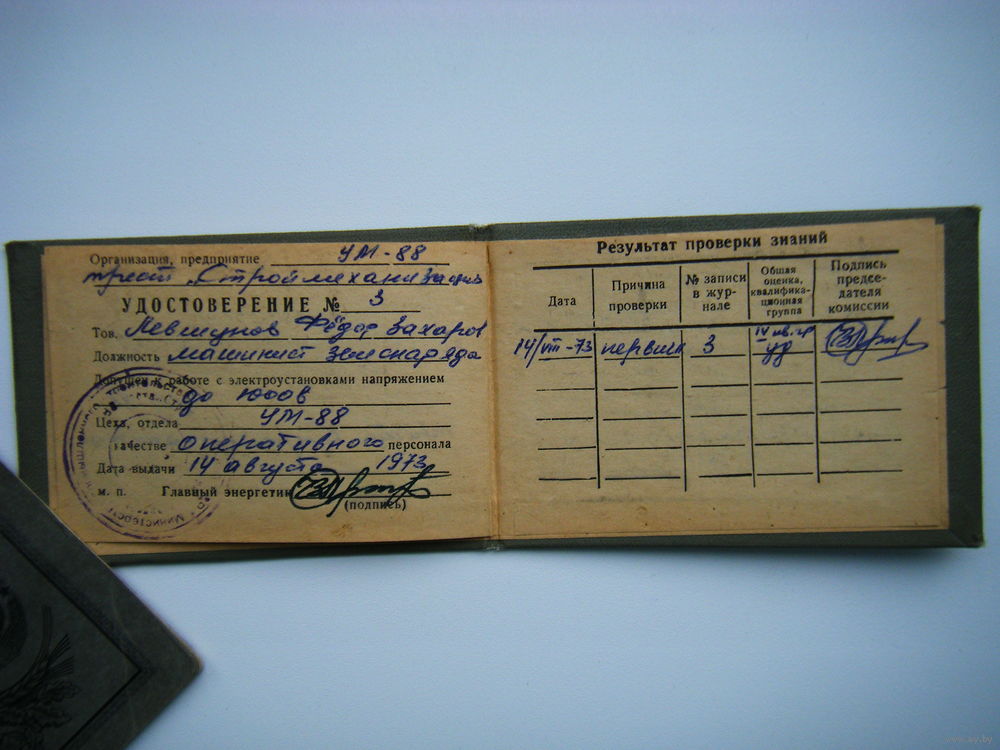 Организация, предприятие УМ-88
трест "Строймеханизация
УДОСТОВЕРЕНИЕ № 3
Тов. Левшунов Фёдор Захаров
Должность машинист земснаряда
Допущен к работе с электроустановками напряжением
до 1000в
Цеха, отдела УМ-88
качестве оперативного персонала
Дата выдачи 14 августа 1973
м. п. Главный энергетик
(подпись)
Результат проверки знаний
Дата
Причина проверки
№ записи в жур-нале
Общая оценка, квалифика-ционная группа
Подпись предсе-дателя комиссии
14/VIII-73 первич 3 IV кв. гр уд
www.ay.by